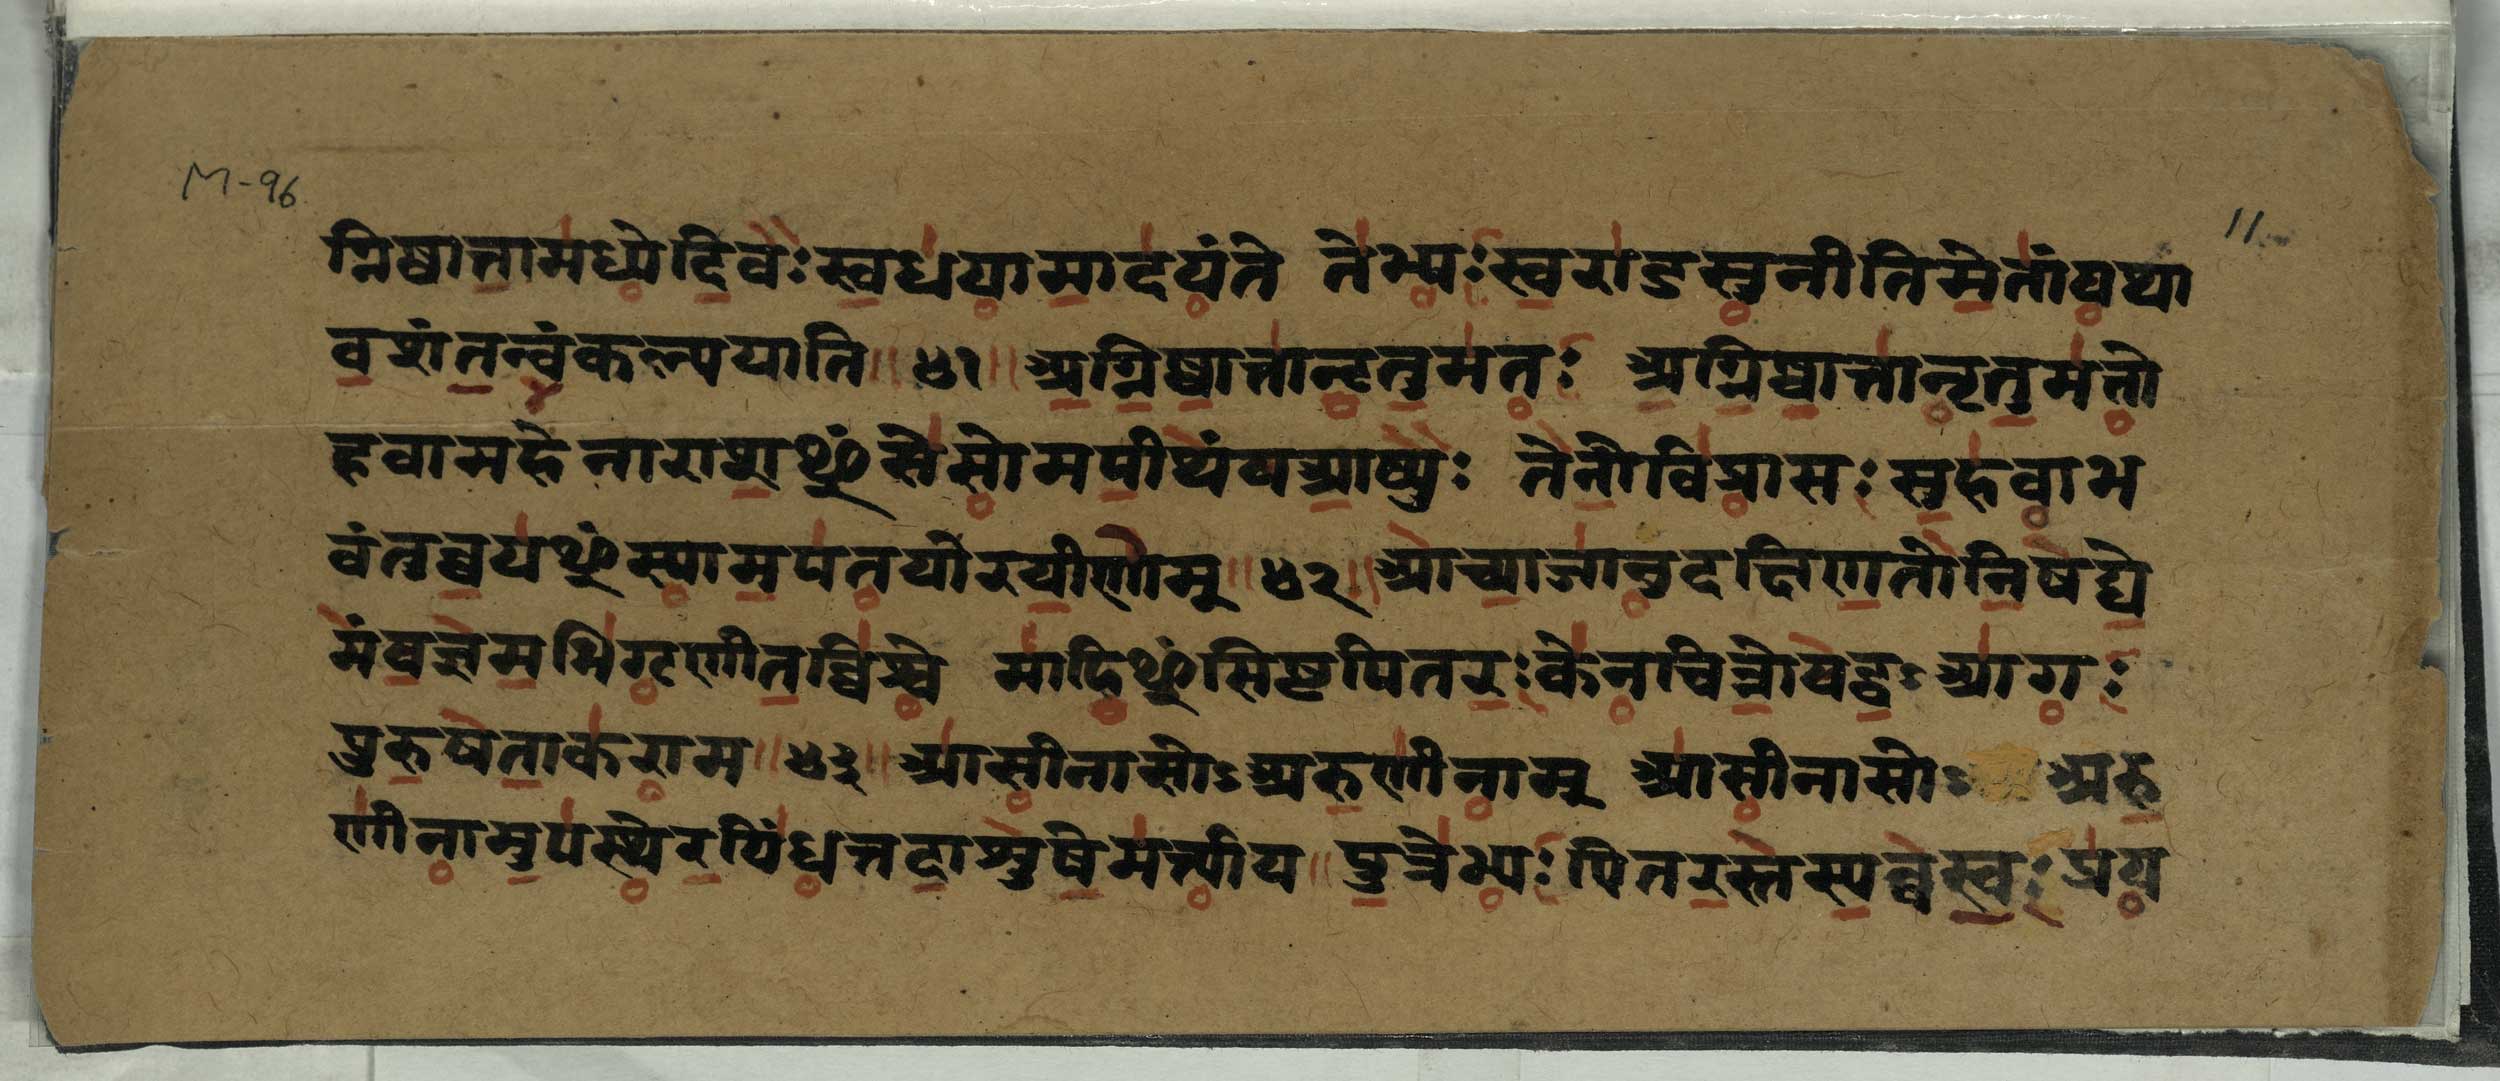 M-96
11
ग्निष्वात्तामध्येदिवः स्वधयामादयंते तेभ्यः स्वराडसुनीतिमेतांयथा
वशंतन्वंकल्पयाति ॥ ५१ ॥ अग्निष्वात्तानृतुमतः अग्निष्वात्तानृतुमतो
हवामहे नाराशꣳसेसोमपीथंयआश्युः तेनोविप्रासः सुहवाभ
वंतुव्वयꣳस्यामपतयोरयीणाम् ॥ ५२ ॥ आच्याजानुदक्षिणतोनिषद्ये
मंयज्ञमभिगृणीतविश्वे माहिꣳसिष्टपितरः केनचिन्नोयद्वऽआगः
पुरुषताकराम ॥ ५३ ॥ आसीनासोऽअरुणीनाम् आसीनासोऽ अरु
णीनामुपस्थेरयिंधत्तदाशुषेमर्त्याय ॥ पुत्रेभ्यः पितरस्तस्यव्वस्वः प्रय